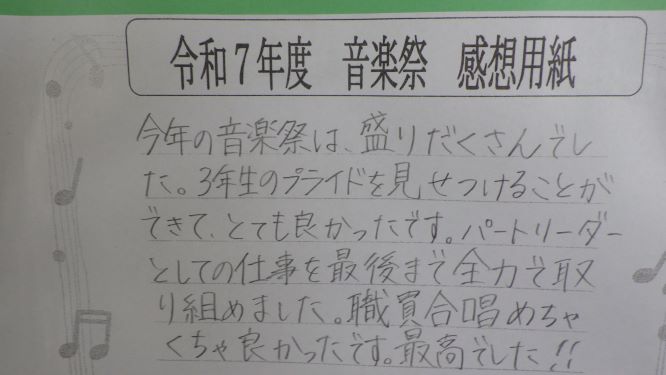 令和7年度　音楽祭　感想用紙
今年の音楽祭は、盛りだくさんでし
た。3年生のプライドを見せつけることが
できて、とても良かったです。パートリーダー
としての仕事を最後まで全力で取
り組めました。職員合唱めちゃ
くちゃ良かったです。最高でした!!